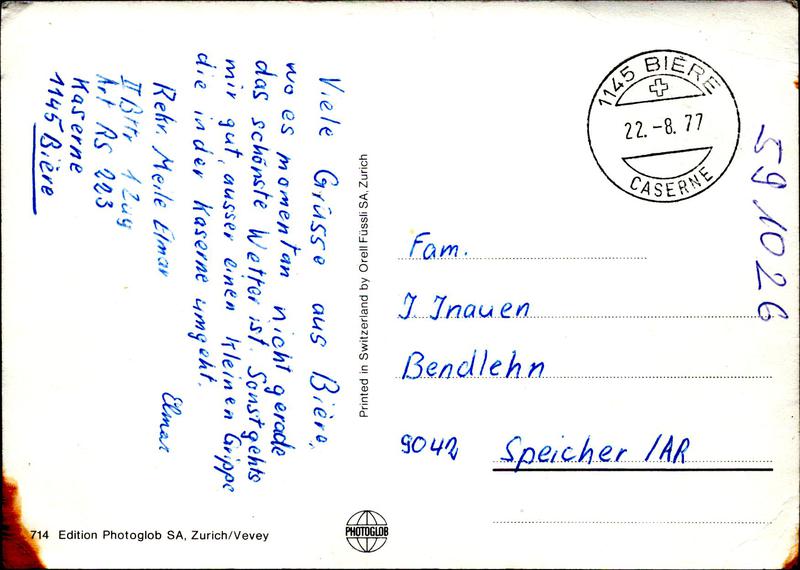 Viele Grüsse aus Bière,
wo es momentan nicht gerade
das schönste Wetter ist. Sonst gehts
mir gut, ausser einen kleinen Grippe
die in der Kaserne umgeht.
Elmar
Rekr. Meile Elmar
II Bttr 1 Zug
Art RS 223
Kaserne
1145 Bière
Printed in Switzerland by Orell Füssli SA, Zurich
1145 BIÈRE
22.-8.77
CASERNE
591026
Fam.
J Inauen
Bendlehn
9042 Speicher /AR
714 Edition Photoglob SA, Zurich/Vevey
PHOTOGLOB